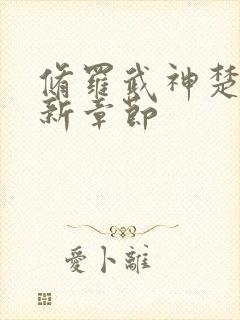 脩羅武神楚
新章節
愛卜離